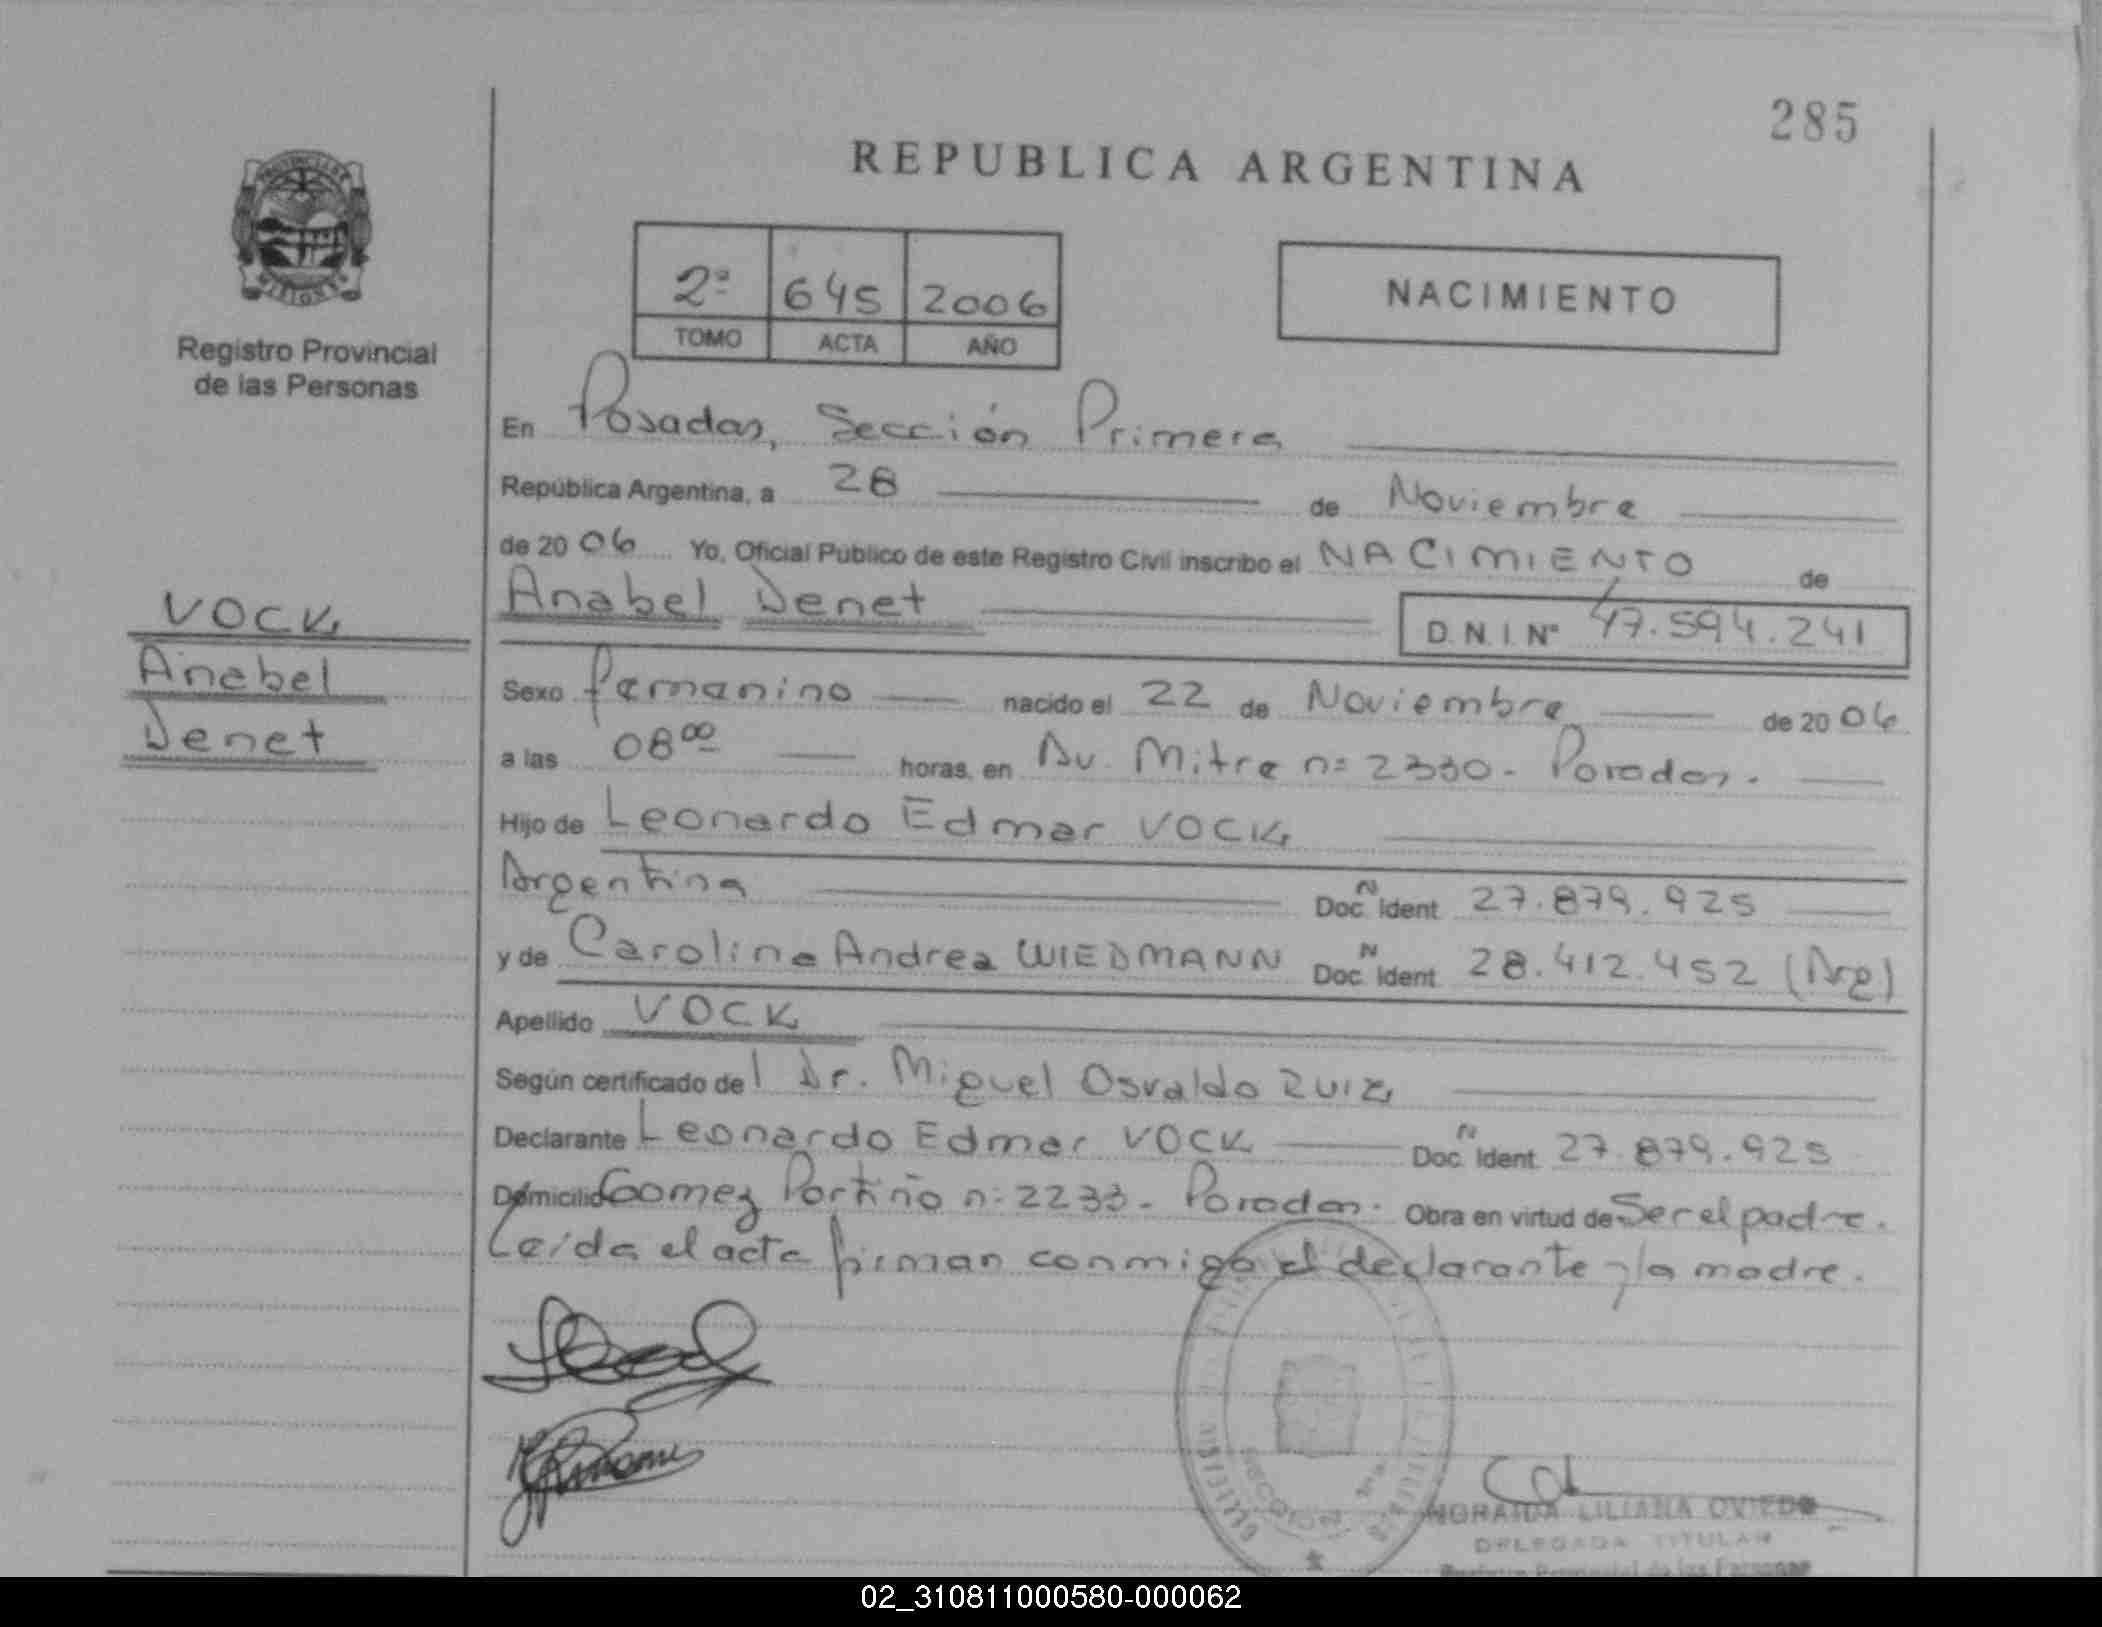 285
REPUBLICA ARGENTINA
PROVINCIA DE
MISIONES
Registro Provincial
de las Personas
2º 645 2006
TOMO ACTA AÑO
NACIMIENTO
En Posadas, Sección Primera
República Argentina, a 28 de Noviembre
de 2006 Yo, Oficial Público de este Registro Civil inscribo el NACIMIENTO de
Anabel Jenet
D.N.I. Nº 47.594.241
VOCK
Anabel
Jenet
Sexo femenino nacido el 22 de Noviembre de 2006
a las 08 00 horas, en Av. Mitre nº 2330 - Posadas.
Hijo de Leonardo Edmar VOCK
Argentina Doc. Ident N 27.879.925
y de Carolina Andrea WIEDMANN Doc. Ident N 28.412.452 (Arg)
Apellido VOCK
Según certificado del Dr. Miguel Osvaldo RUIZ
Declarante Leonardo Edmar VOCK Doc. Ident N 27.879.925
Domicilio Gomez Portiño nº 2233 - Posadas. Obra en virtud de Ser el padre.
Leída el acta firman conmigo el declarante y la madre.
NORAIDA LILIANA OVIEDO
DELEGADA TITULAR
Registro Provincial de las Personas
02_310811000580-000062